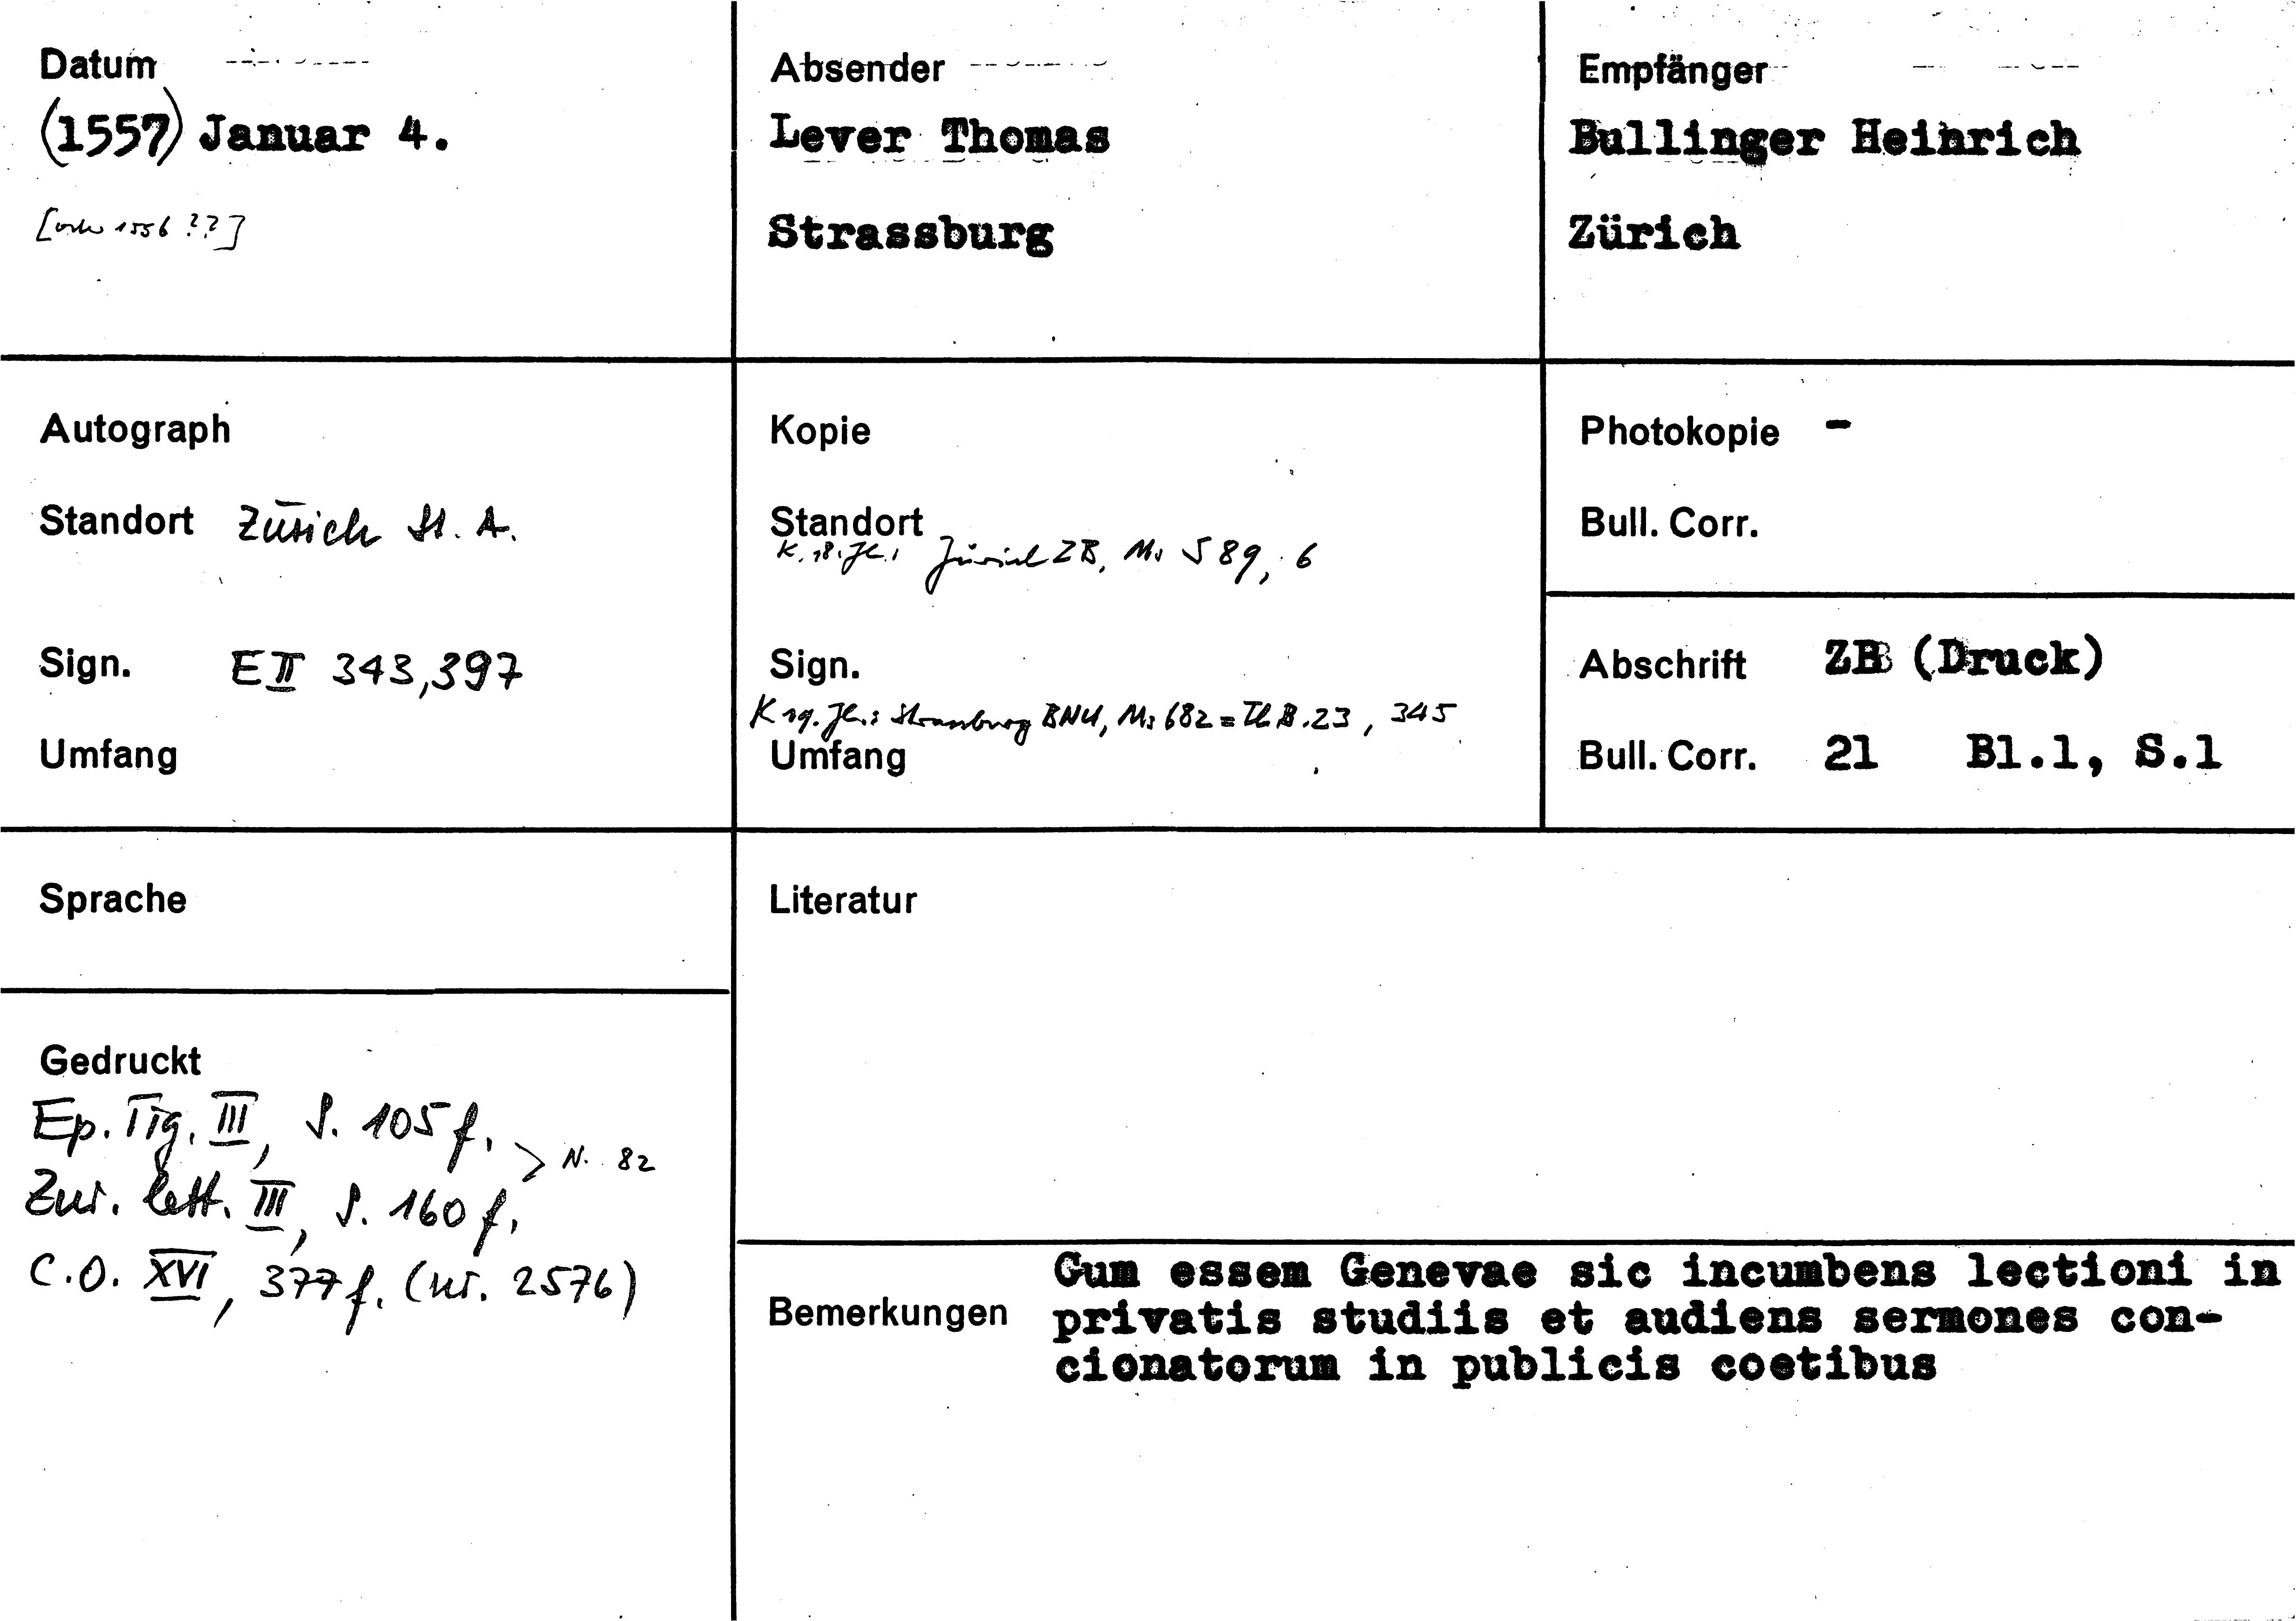 Datum
(1557) Januar 4.
[oder 1556 ??]
Absender
Lever Thomas
Strassburg
Empfänger
Bullinger Heinrich
Zürich
Autograph
Standort Zürich St. A.
Sign. E II 343,397
Umfang
Kopie
Standort
K. 18. Jh.: Zürich ZB, Ms S 89, 6
Sign.
K 19. Jh.: Strassburg BNU, Ms 682 = Th B. 23, 345
Umfang
Photokopie -
Bull. Corr.
Abschrift ZB (Druck)
Bull. Corr. 21 Bl.1, S.1
Sprache
Gedruckt
Ep. Tig. III, S. 105 f.
> N. 82
Zur. lett. III, S. 160 f.
C.O. XVI, 377 f. (nr. 2576)
Literatur
Bemerkungen
Cum essem Genevae sic incumbens lectioni in
privatis studiis et audiens sermones con-
cionatorum in publicis coetibus